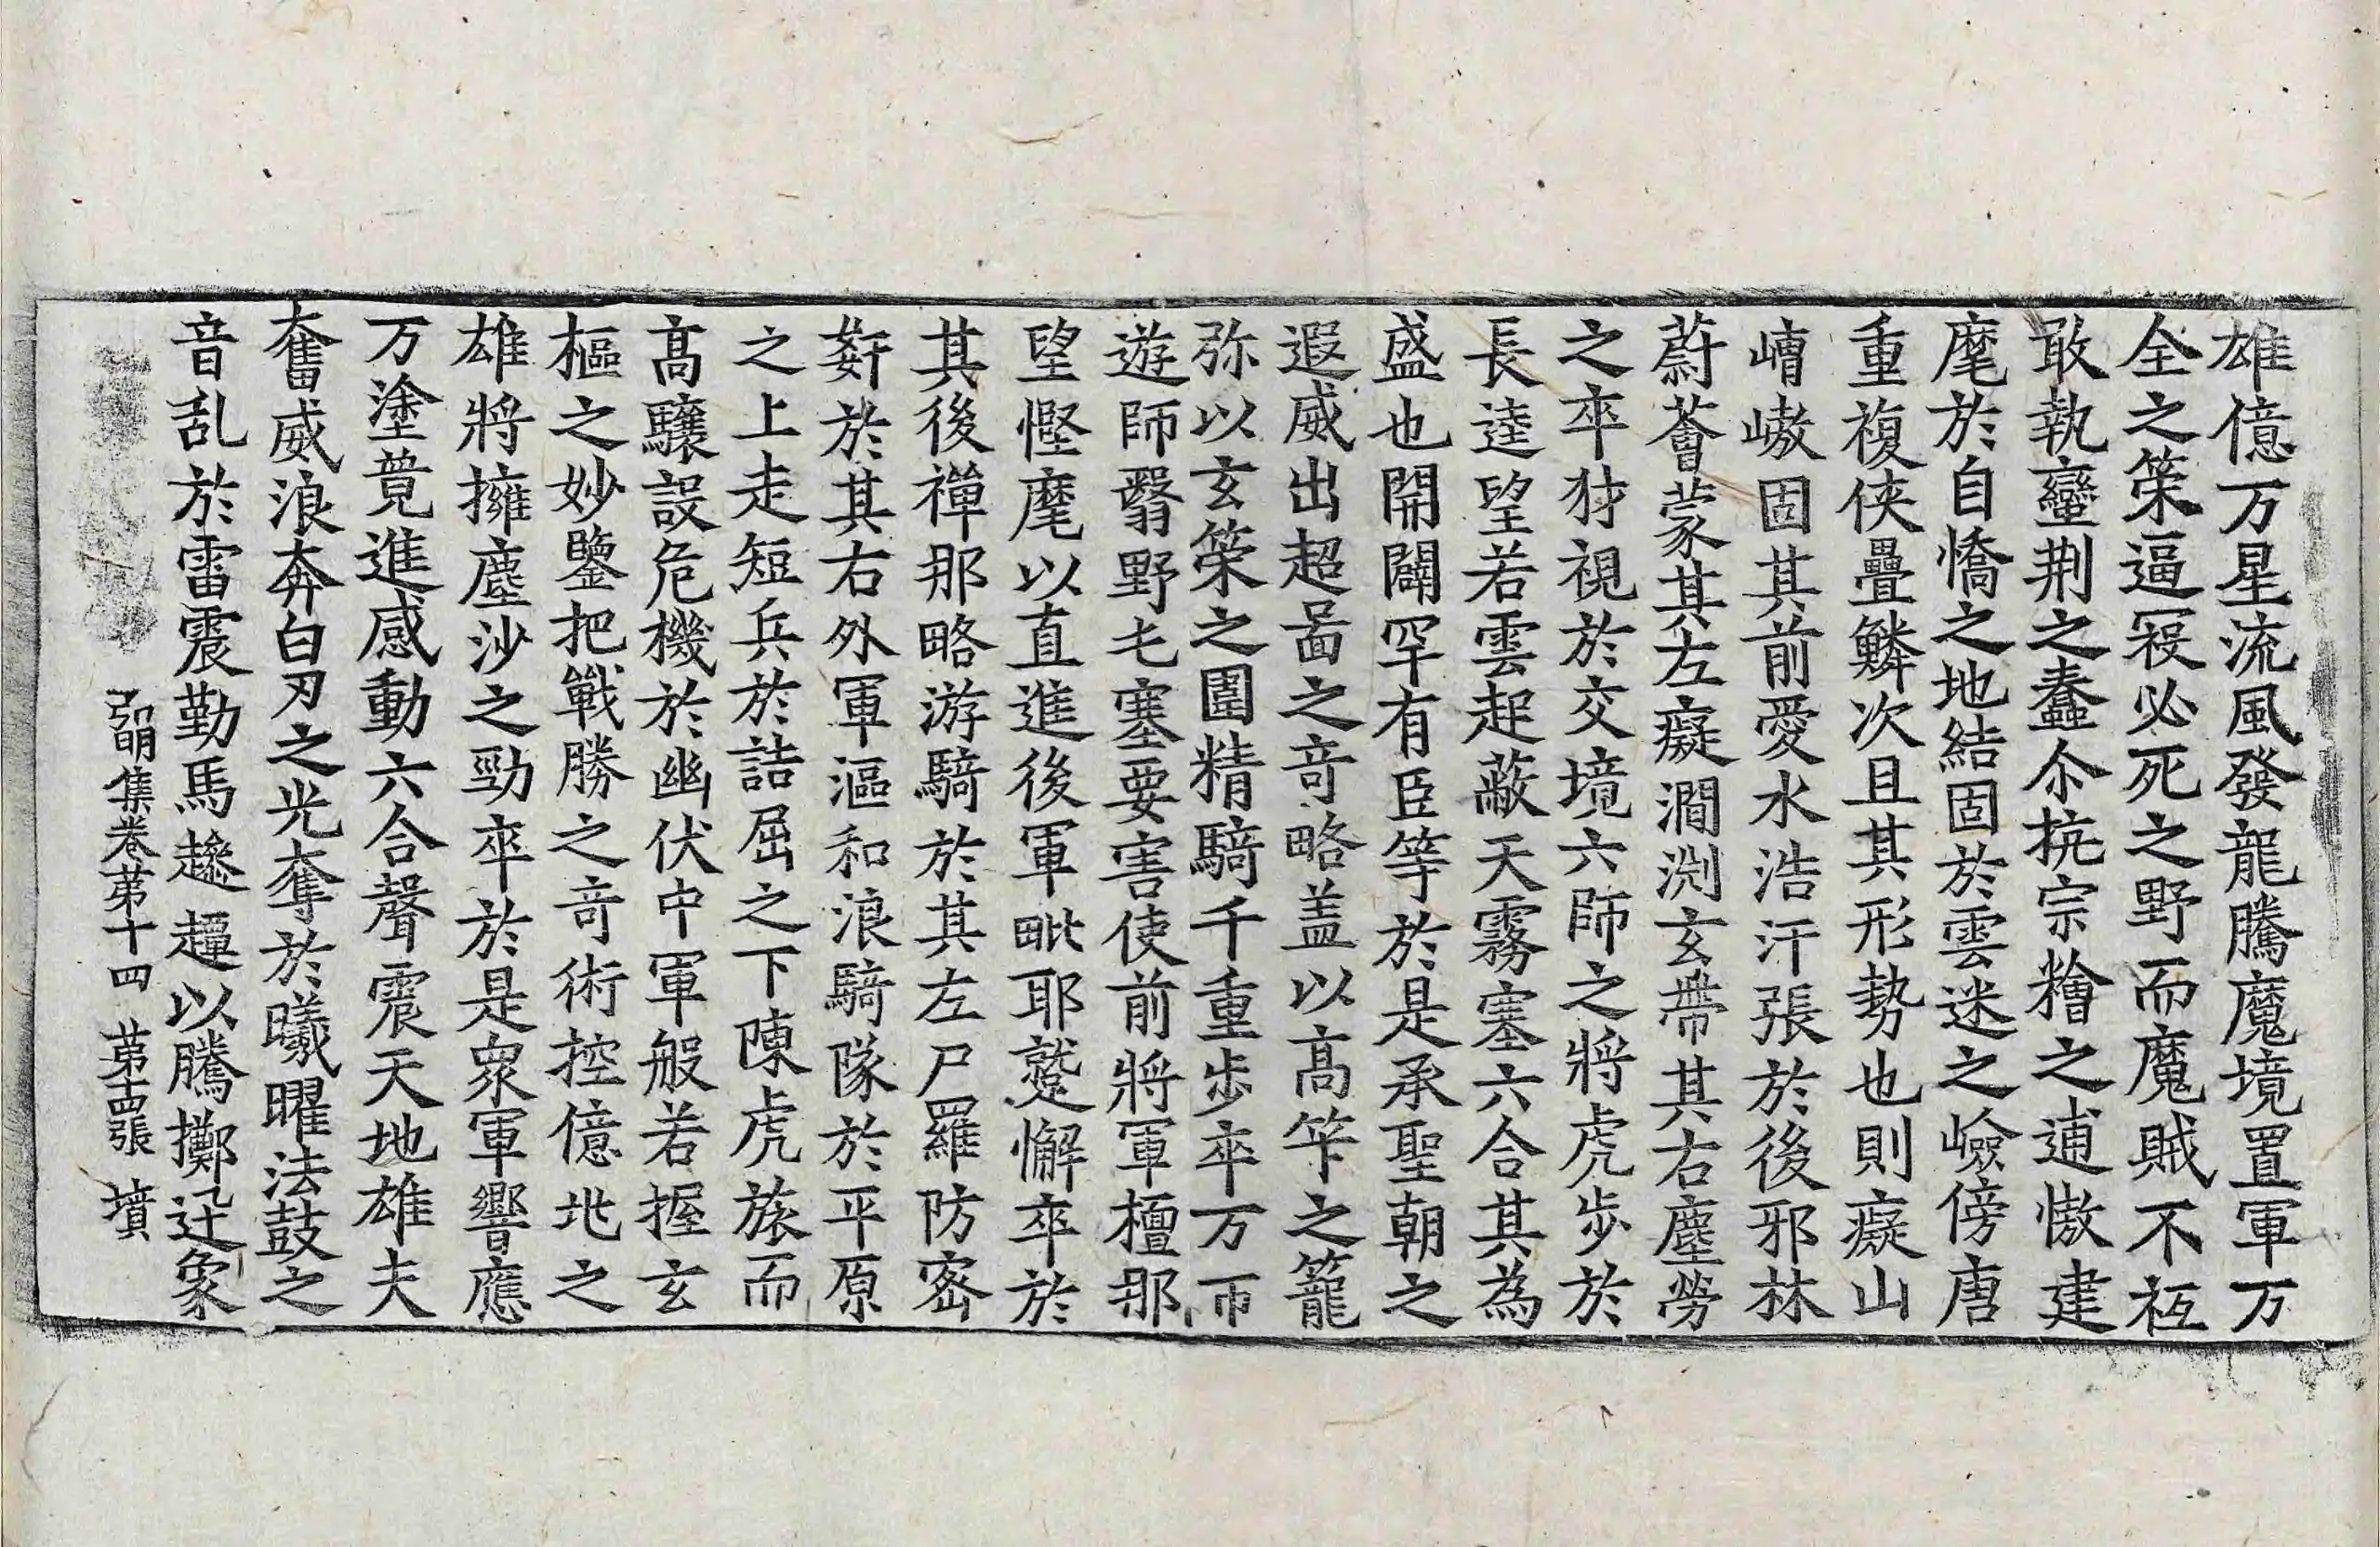 雄億万星流風發龍騰魔境置軍万
全之策逼寇必死之野而魔賊不祗
敢執蠻荆之蠢尒抗宗稽之逋憿建
麾於自憍之地結固於雲迷之嶮傍唐
重複俠疊鱗次且其形勢也則癡山
嶆嶅固其前愛水浩汗張於後邪林
蔚薈蒙其左癡澗渕玄帶其右塵勞
之卒豺視於交境六師之將虎步於
長逵望若雲起蔽天霧塞六合其為
盛也開闢罕有臣等於是承聖朝之
遐威出超啚之竒略盖以高笇之籠
弥以玄策之圍精騎千重步卒万帀
遊師翳野乇塞要害使前將軍檀那
望慳麾以直進後軍毗耶蹵懈卒於
其後禪那略游騎於其左尸羅防密
姧於其右外軍漚和浪騎隊於平原
之上走短兵於詰屈之下陳虎旅而
高驤設危機於幽伏中軍般若握玄
樞之妙鑒把戰勝之竒術控億兆之
雄將擁塵沙之勁卒於是眾軍響應
万塗竟進感動六合聲震天地雄夫
奮威浪奔白刃之光奪於曦曜法鼓之
音乱於雷震勒馬趁趯以騰擲迋象
弘明集卷第十四 第十四張 墳